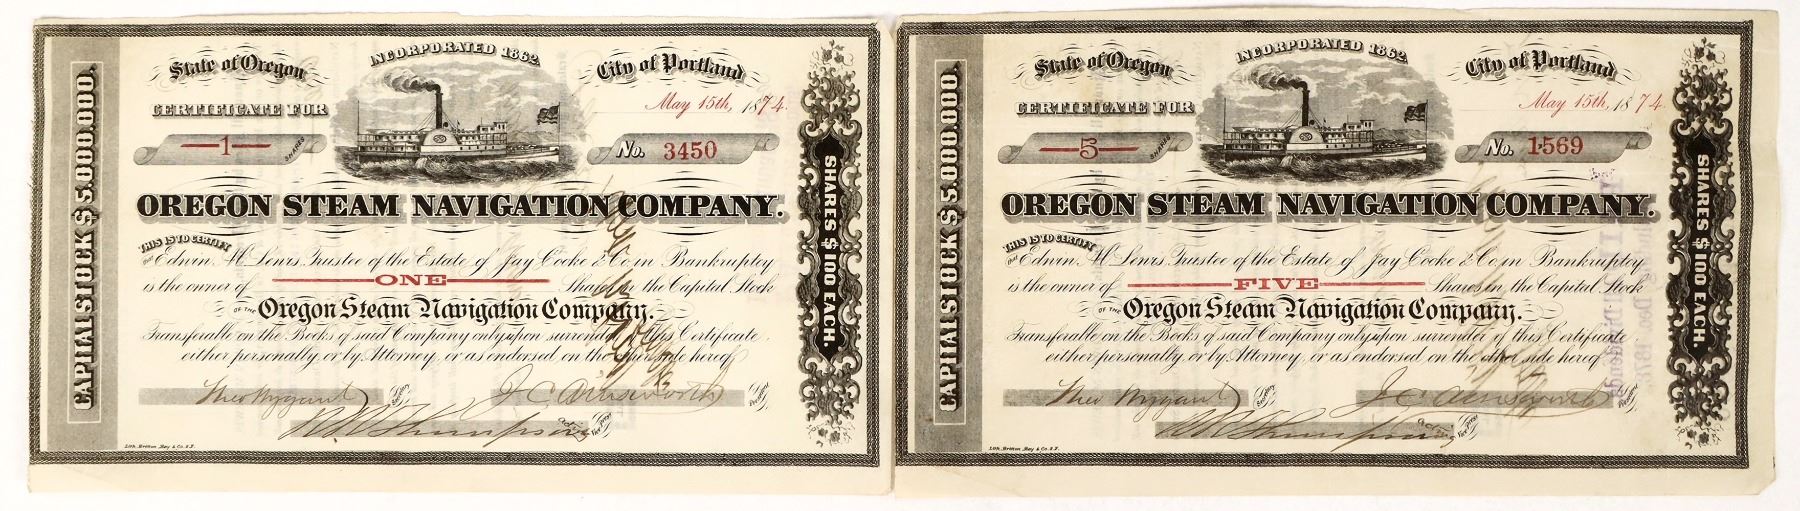 CAPITAL STOCK $5,000,000.
State of Oregon
INCORPORATED 1862.
City of Portland
May 15th, 1874.
CERTIFICATE FOR
1 SHARES
No. 3450
OREGON STEAM NAVIGATION COMPANY.
THIS IS TO CERTIFY
that Edwin M. Lewis, Trustee of the Estate of Jay Cooke & Co in Bankruptcy
is the owner of ONE Shares in the Capital Stock
OF THE Oregon Steam Navigation Company.
Transferable on the Books of said Company only upon surrender of this Certificate,
either personally or by Attorney, or as endorsed on the other side hereof
Theo Wygant Secretary
J C Ainsworth President
R R Thompson acting Vice Prest
Lith. Britton, Rey & Co. S.F.
SHARES $100 EACH.
CAPITAL STOCK $5,000,000.
State of Oregon
INCORPORATED 1862.
City of Portland
May 15th, 1874.
CERTIFICATE FOR
5 SHARES
No. 1569
OREGON STEAM NAVIGATION COMPANY.
THIS IS TO CERTIFY
that Edwin M. Lewis, Trustee of the Estate of Jay Cooke & Co in Bankruptcy
is the owner of FIVE Shares in the Capital Stock
OF THE Oregon Steam Navigation Company.
Transferable on the Books of said Company only upon surrender of this Certificate,
either personally or by Attorney, or as endorsed on the other side hereof
Theo Wygant Secretary
J C Ainsworth
R R Thompson acting Vice Prest
Lith. Britton, Rey & Co. S.F.
SHARES $100 EACH.